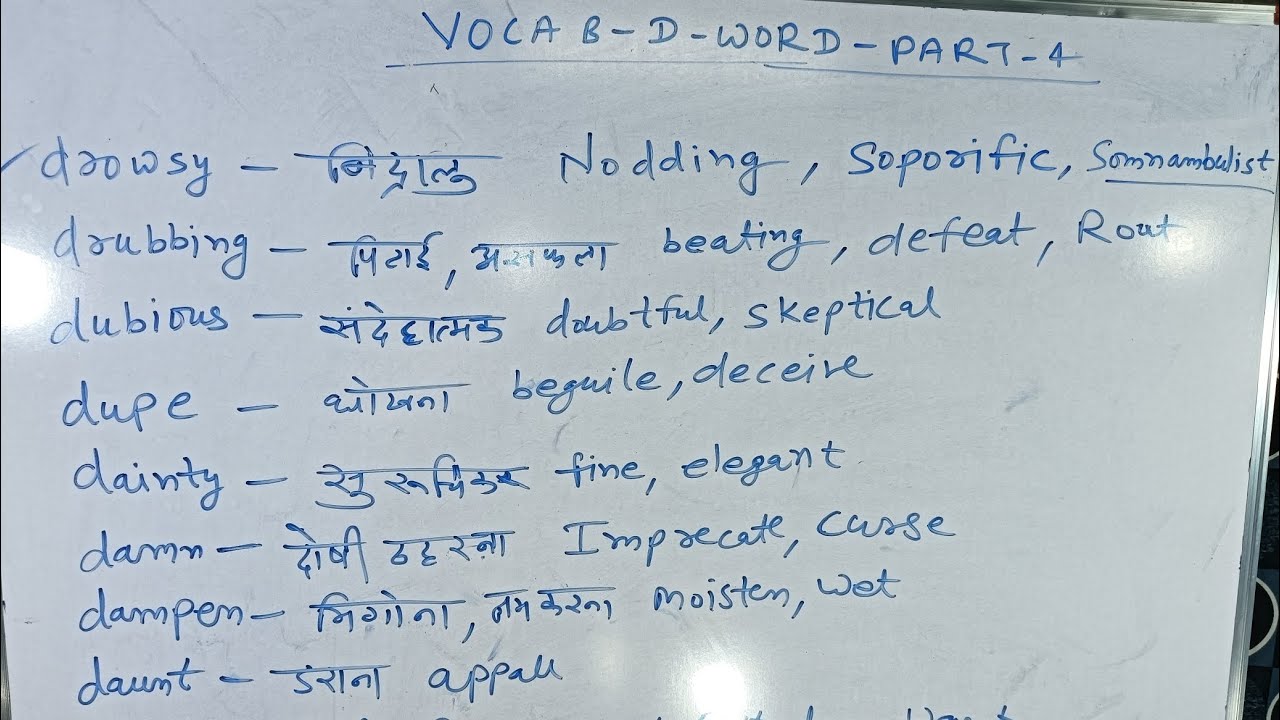 VOCAB-D-WORD-PART-4
drowsy - निद्रालु Nodding, Soporific, Somnambulist
drubbing - पिटाई, असफलता beating, defeat, Rout
dubious - संदेहात्मक doubtful, skeptical
dupe - धोखना beguile, deceive
dainty - सुरूचिकर fine, elegant
damn - दोषी ठहरना Imprecate, curse
dampen - भिगोना, नम करना moisten, wet
daunt - डराना appall